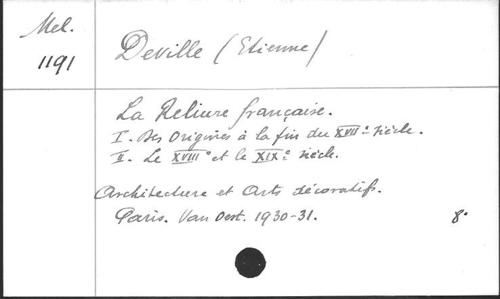 Mel.
1191
Deville (Etienne)
La Reliure française.
I. Des Origines à la fin du XVIIe siècle.
II. Le XVIIIe et le XIXe siècle.
Architecture et Arts décoratifs.
Paris. Van Oest. 1930-31. 8°